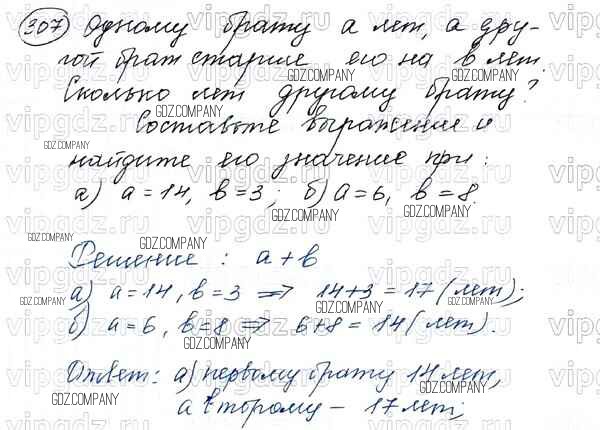 307 Одному брату а лет, а дру-
гой брат старше его на в лет.
Сколько лет другому брату?
Составьте выражение и
найдите его значение при:
а) а = 14, в = 3; б) а = 6, в = 8.
Решение: а + в
а) а = 14, в = 3 => 14 + 3 = 17 (лет);
б) а = 6, в = 8 => 6 + 8 = 14 (лет).
Ответ: а) первому брату 14 лет,
а второму - 17 лет;